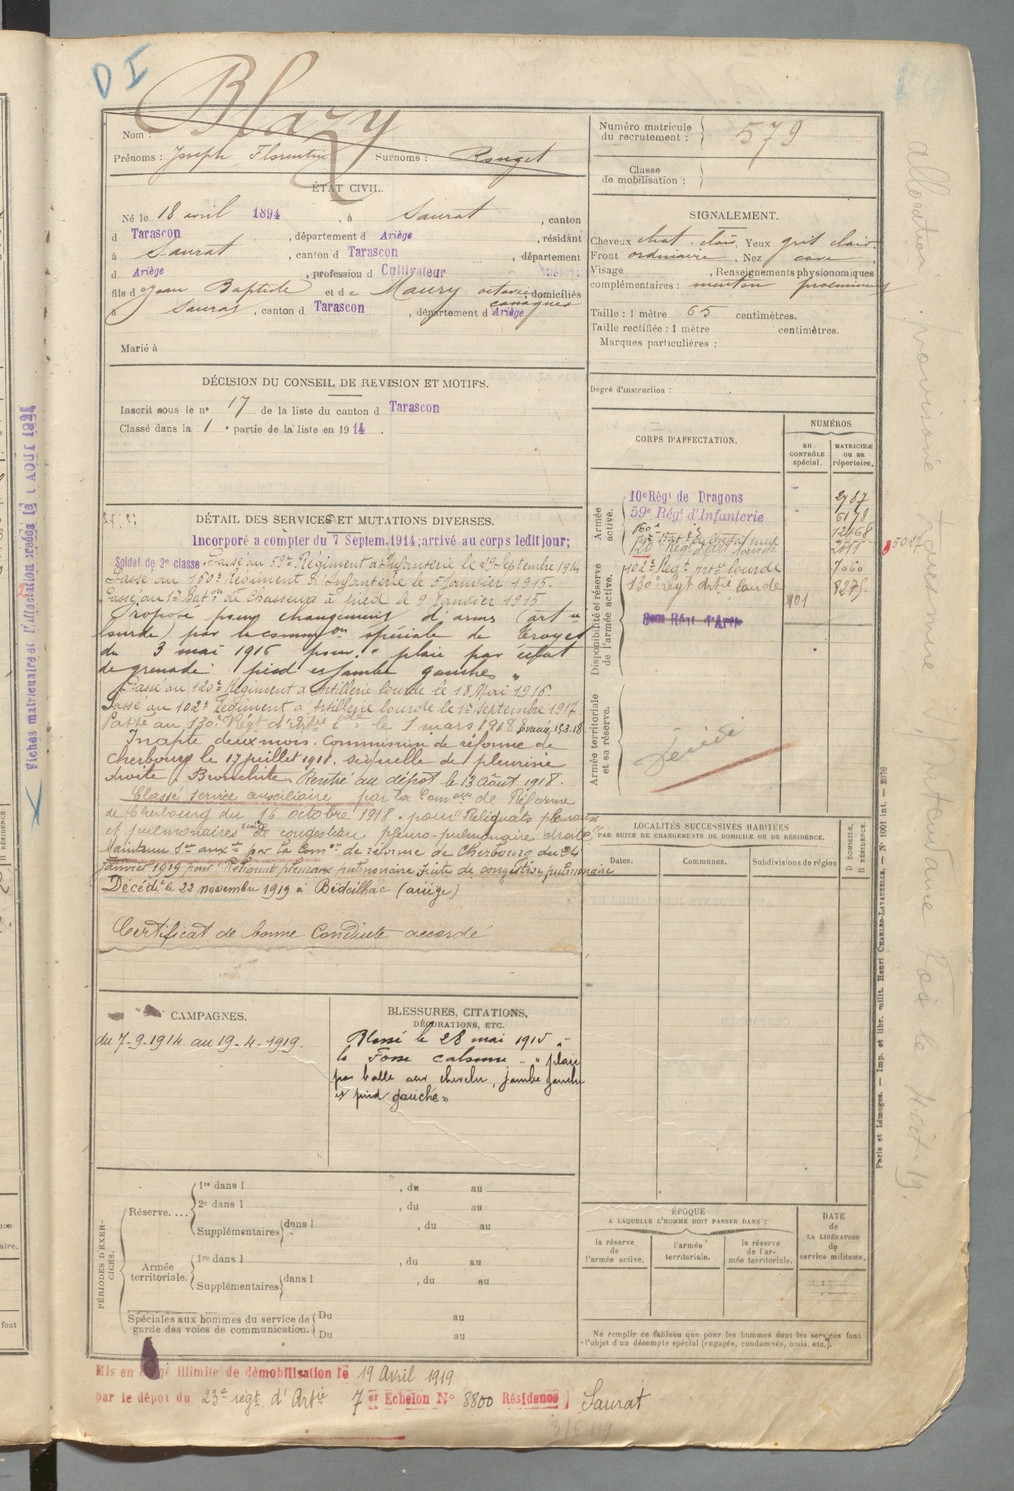 D I
Blazy
Nom :
Prénoms : Joseph Florentin Surnoms : Rouget
ÉTAT CIVIL.
Né le 18 avril 1894, à Saurat, canton
d Tarascon, département d Ariège, résidant
à Saurat, canton d Tarascon, département
d Ariège, profession d Cultivateur
fils d Jean Baptiste et d e Maury octavie, domiciliés
à Saurat, canton d Tarascon, département d Ariège
Marié à
DÉCISION DU CONSEIL DE REVISION ET MOTIFS.
Inscrit sous le n° 17 de la liste du canton d Tarascon
Classé dans la 1 e partie de la liste en 1914.
DÉTAIL DES SERVICES ET MUTATIONS DIVERSES.
Incorporé a compter du 7 Septem. 1914; arrivé au corps ledit jour;
Soldat de 2e classe. Passé au 59e Régiment d'Infanterie le Septembre 1914
Passé au 160e Régiment d'Infanterie le 5 Janvier 1915.
Passé au 1er Baton de Chasseurs à pied le 9 Janvier 1915
Proposé pour changement d'arme (artie
lourde) par la common spéciale de Troyes
du 3 mai 1916 pour : " plaie par éclat
de grenade pied et jambe gauches "
Passé au 120e Régiment d'Artillerie lourde le 18 Mai 1916.
Passé au 102e Régiment d'Artillerie lourde le 1er Septembre 1917.
Passé au 130e Régt d'Artie Lde le 1 mars 1918
Inapte deux mois. Commission de réforme de
Cherbourg le 17 juillet 1918. séquelle de pleurésie
droite, Bronchite. Rentré au dépôt le 13 Août 1918.
Classé service auxiliaire par la Comon de Réforme
de Cherbourg du 16 octobre 1918. pour Reliquats pleuraux
et pulmonaires suite de congestion pleuro-pulmonaire droite "
Maintenu Sce auxre par la Comon de réforme de Cherbourg du 24
Janvier 1919 pour " Reliquat pleuraux pulmonaire Suite de congestion pulmonaire
Décédé le 22 novembre 1919 à Bédeilhac (ariège)
Certificat de bonne Conduite accordé
CAMPAGNES.
du 7-9-1914 au 19-4-1919.
BLESSURES, CITATIONS,
DÉCORATIONS, ETC.
Blessé le 28 mai 1915 à
la Fosse calonne - " plaie
par balle cuir chevelu, jambe gauche
et pied gauche "
PÉRIODES D'EXERCICES.
Réserve....
1re dans l , du au
2e dans l , du au
Supplémentaires dans l , du au
Armée territoriale.
1re dans l , du au
Supplémentaires dans l , du au
Spéciales aux hommes du service de garde des voies de communication.
Du au
Du au
Mis en congé illimité de démobilisation le 19 Avril 1919
par le dépôt du 23e régt d'Artie 7 er Echelon N° 8800 Résidence) Saurat
Numéro matricule
du recrutement : 579
Classe
de mobilisation :
SIGNALEMENT.
Cheveux chat. clair. Yeux gris clair.
Front ordinaire. Nez cave
Visage , Renseignements physionomiques
complémentaires : menton proéminent
Taille : 1 mètre 65 centimètres.
Taille rectifiée : 1 mètre centimètres.
Marques particulières :
Degré d'instruction :
CORPS D'AFFECTATION.
NUMÉROS
au contrôle spécial.
MATRICULE OU AU répertoire.
Armée active.
10e Régt de Dragons 2787
59e Régt d'Infanterie 6178
160e 12468
120e Régt d'art lourde
Disponibilité et réserve de l'armée active.
102e Régt artie lourde 7060
130e régt artie lourde 8275
Armée territoriale et sa réserve.
Décédé
LOCALITÉS SUCCESSIVES HABITÉES
PAR SUITE DE CHANGEMENTS DE DOMICILE OU DE RÉSIDENCE.
Dates. Communes. Subdivisions de région
D DOMICILE. R RÉSIDENCE.
ÉPOQUE
A LAQUELLE L'HOMME DOIT PASSER DANS :
la réserve de l'armée active.
l'armée territoriale.
la réserve de l'armée territoriale.
DATE de LA LIBÉRATION du service militaire.
Ne remplir ce tableau que pour les hommes dont les services font
l'objet d'un décompte spécial (engagés, condamnés, omis, etc.).
Paris et Limoges. — Imp. et libr. milit. Henri CHARLES-LAVAUZELLE. — N° 1001 int. — 2076